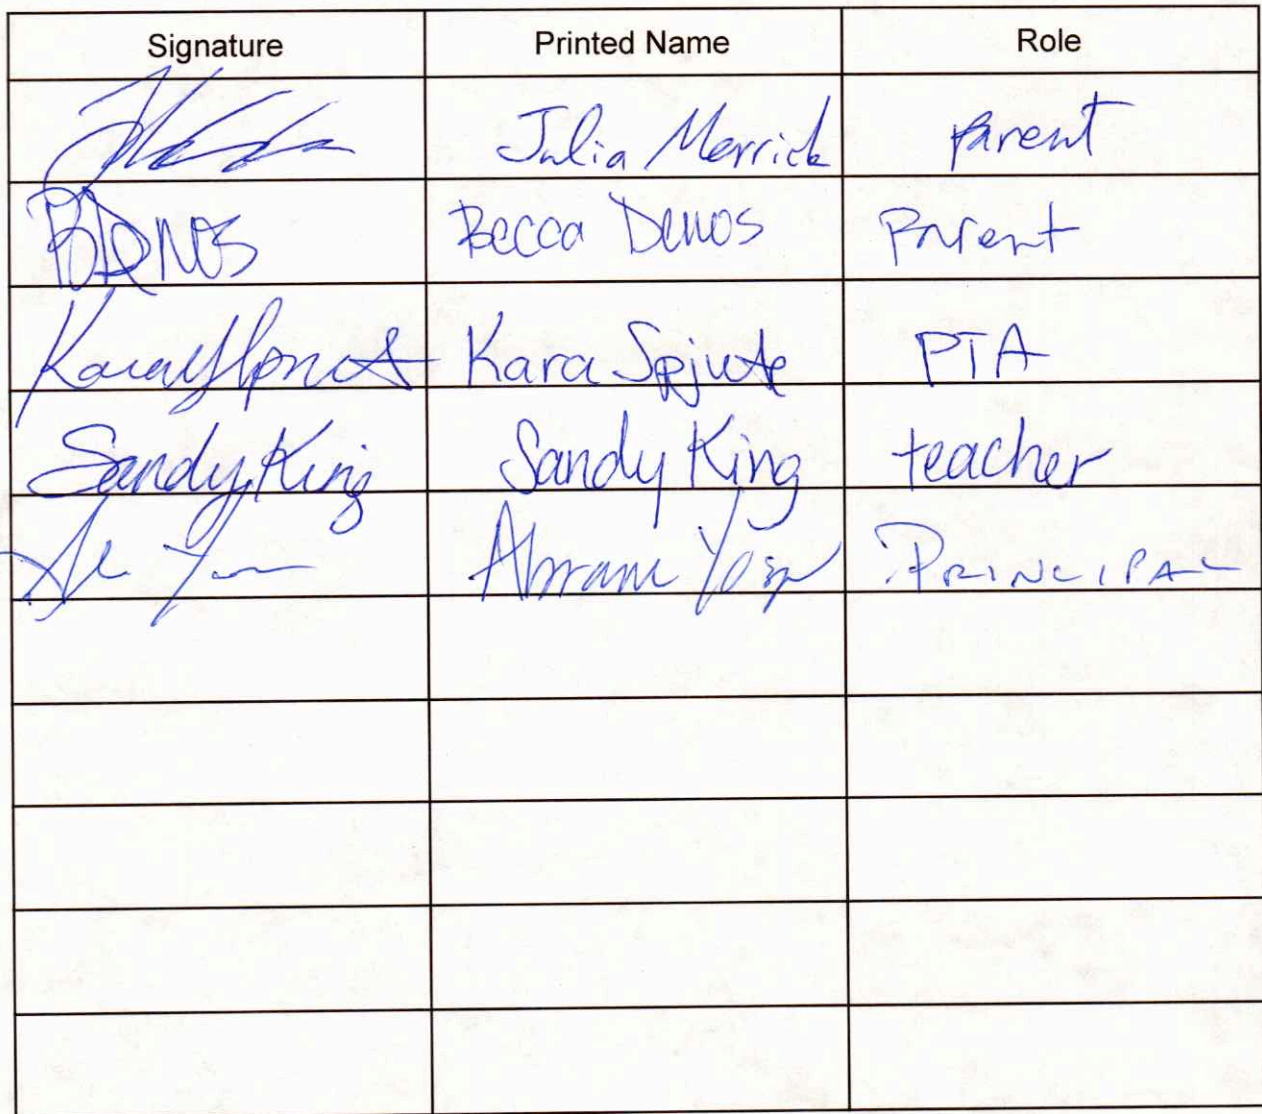 Signature Printed Name Role
Julia Merrick Parent
BDENOS Becca Denos Parent
Kara Spjute PTA
Sandy King Sandy King teacher
PRINCIPAL